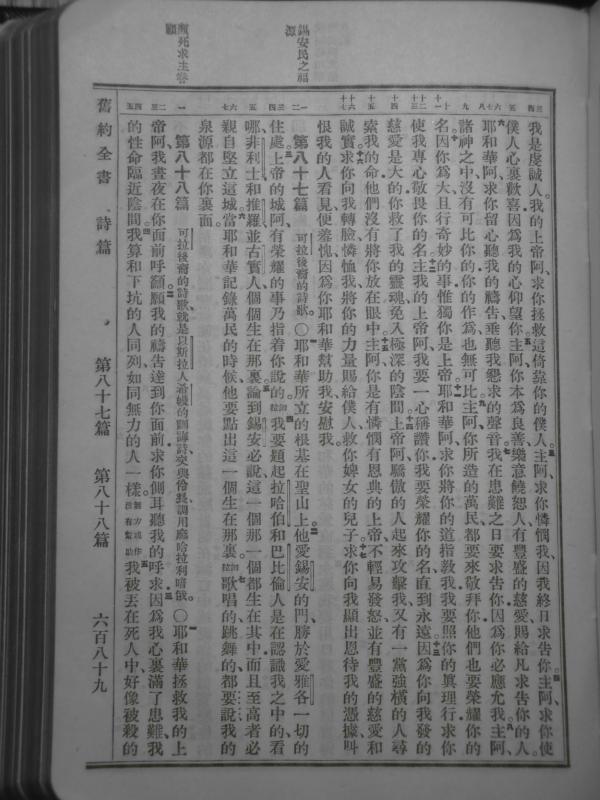 錫安民之福
源
瀕死求主眷
顧
我是虔誠人我的上帝阿求你拯救這倚靠你的僕人主阿求你憐憫我因我終日求告你主阿求你使
僕人心裏歡喜因爲我的心仰望你主阿你本爲良善樂意饒恕人有豐盛的慈愛賜給凡求告你的人
耶和華阿求你留心聽我的禱告垂聽我懇求的聲音我在患難之日要求告你因爲你必應允我主阿
諸神之中沒有可比你的你的作爲也無可比主阿你所造的萬民都要來敬拜你他們也要榮耀你的
名因你爲大且行奇妙的事惟獨你是上帝耶和華阿求你將你的道指教我我要照你的眞理行求你
使我專心敬畏你的名主我的上帝阿我要一心稱讚你我要榮耀你的名直到永遠因爲你向我發的
慈愛是大的你救了我的靈魂免入極深的陰間上帝阿驕傲的人起來攻擊我又有一黨強橫的人尋
索我的命他們沒有將你放在眼中主阿你是有憐憫有恩典的上帝不輕易發怒並有豐盛的慈愛和
誠實求你向我轉臉憐恤我將你的力量賜給僕人救你婢女的兒子求你向我顯出恩待我的憑據叫
恨我的人看見便羞愧因爲你耶和華幫助我安慰我
第八十七篇 可拉後裔的詩歌〇耶和華所立的根基在聖山上他愛錫安的門勝於愛雅各一切的
住處上帝的城阿有榮耀的事乃指着你說的我要題起拉哈伯和巴比倫人是在認識我之中的看
哪非利士和推羅並古實人個個生在那裏論到錫安必說這一個那一個都生在其中而且至高者必
親自堅立這城當耶和華記錄萬民的時候他要點出這一個生在那裏歌唱的跳舞的都要說我的
泉源都在你裏面
第八十八篇 可拉後裔的詩歌就是以斯拉人希幔的訓誨詩交與伶長調用麻哈拉利暗俄〇耶和華拯救我的上
帝阿我晝夜在你面前呼籲願我的禱告達到你面前求你側耳聽我的呼求因爲我心裏滿了患難我
的性命臨近陰間我算和下坑的人同列如同無力的人一樣我被丟在死人中好像被殺的
舊約全書 詩篇 第八十七篇 第八十八篇 六百八十九